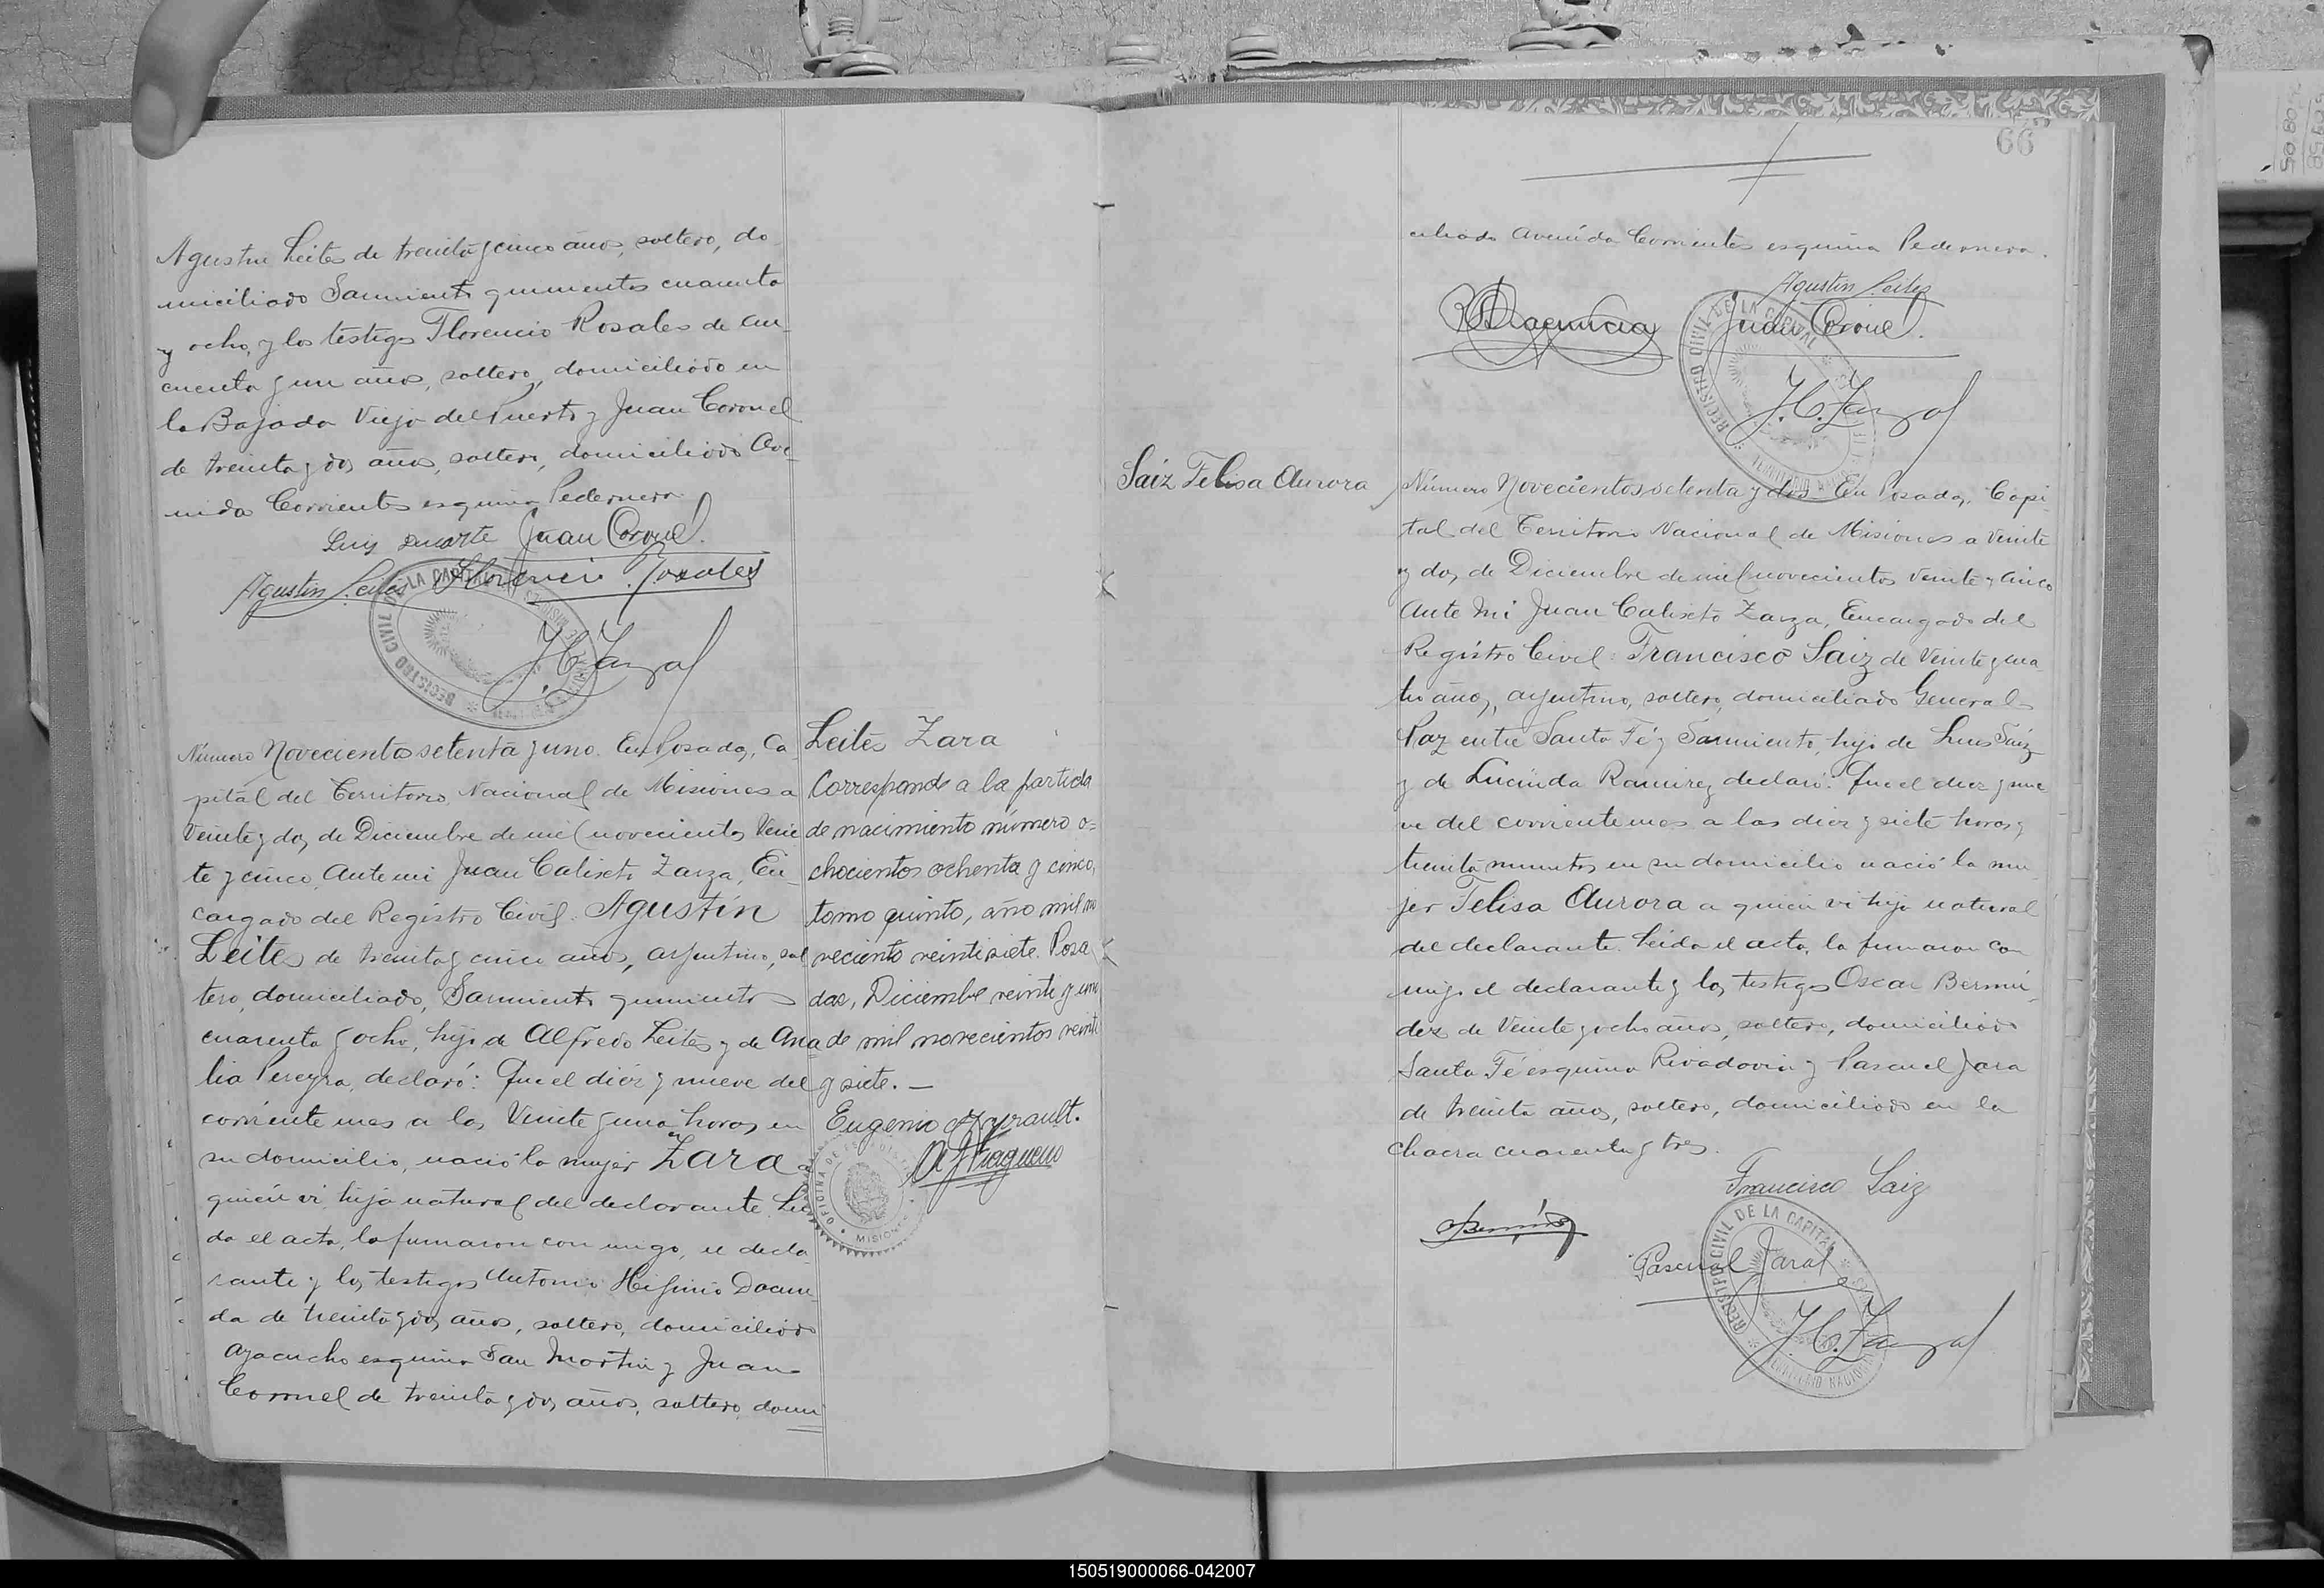 Agustin Leites de treinta y cinco años, soltero, do
miciliado Sarmiento quinientos cuarenta
y ocho, y los testigos Florencio Rosales de cin-
cuenta y un años, soltero, domiciliado en
la Bajada Vieja del Puerto y Juan Coronel
de treinta y dos años, soltero, domiciliado Ave-
nida Corrientes esquina Pedernera
Luis Duarte Juan Coronel
Agustin Leites Florencio Rosales
J.C. Zarza
REGISTRO CIVIL DE LA CAPITAL
Número Novecientos setenta y uno. En Posadas, Ca
pital del Territorio Nacional de Misiones a
veinte y dos de Diciembre de mil novecientos vein
te y cinco, Ante mi Juan Calixto Zarza, En-
cargado del Registro Civil: Agustín
Leites de treinta y cinco años, argentino, sol
tero, domiciliado, Sarmiento quinientos
cuarenta y ocho, hijo de Alfredo Leites y de Ana
lia Pereyra, declaró: Que el diez y nueve del
corriente mes a las veinte y una horas en
su domicilio, nació la mujer Zara a
quien vi, hija natural del declarante. Lei
da el acta, la firmaron con migo, el decla
rante y los testigos Antonio Hifinio
da de treinta y dos años, soltero, domiciliado
Ayacucho esquina San Martin y Juan
Coronel de treinta y dos años, soltero, domi
Leites Zara
Corresponde a la partida
de nacimiento número o=
chocientos ochenta y cinco,
tomo quinto, año mil no
veciento veintisiete. Posa
das, Diciembre veinte y uno
de mil novecientos veinte
y siete. —
Eugenio
OFICINA DE
MISIONES
66
ciliado Avenida Corrientes esquina Pedernera.
Agustin Leites
Juan Coronel.
J.C. Zarza
REGISTRO CIVIL DE LA CAPITAL
TERRITORIO
Saiz Felisa Aurora
Número Novecientos setenta y dos En Posadas, Capi
tal del Territorio Nacional de Misiones a veinte
y dos de Diciembre de mil novecientos veinte y cinco
Ante mi Juan Calixto Zarza, Encargado del
Registro Civil: Francisco Saiz de veinte y cua
tro años, argentino, soltero, domiciliado General
Paz entre Santa Fé y Sarmiento, hijo de Luis Saiz
y de Lucinda Ramirez declaró: Que el diez y nue
ve del corriente mes a las diez y siete horas y
treinta minutos en su domicilio nació la mu
jer Felisa Aurora a quien vi hija natural
del declarante. Leida el acta, la firmaron con
migo el declarante y los testigos Oscar Bermú
dez de veinte y ocho años, soltero, domiciliado
Santa Fé esquina Rivadavia y Pascual Jara
de treinta años, soltero, domiciliado en la
chacra cuarenta y tres.
Francisco Saiz
Pascual Jara
J.C. Zarza
REGISTRO CIVIL DE LA CAPITAL
TERRITORIO NACIONAL
150519000066-042007